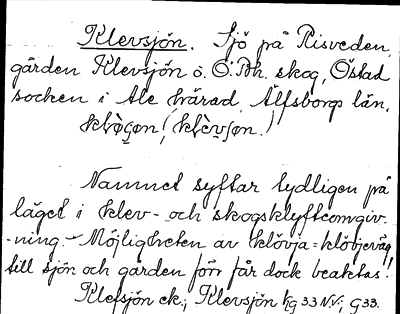 Klevsjön. Sjö på Risveden,
gården Klevsjön ö. Ö. Bh. skog, Östad
socken i Ale härad, Älfsborgs län.
Namnet syftar tydligen på
läget i klev- och skogsklyftomgiv-
-ning. Möjligheten av klövja = klövjeväg
till sjön och gården förr får dock beaktas!
Klefsjön ek.; Klevsjön kg 33 NV; G33.